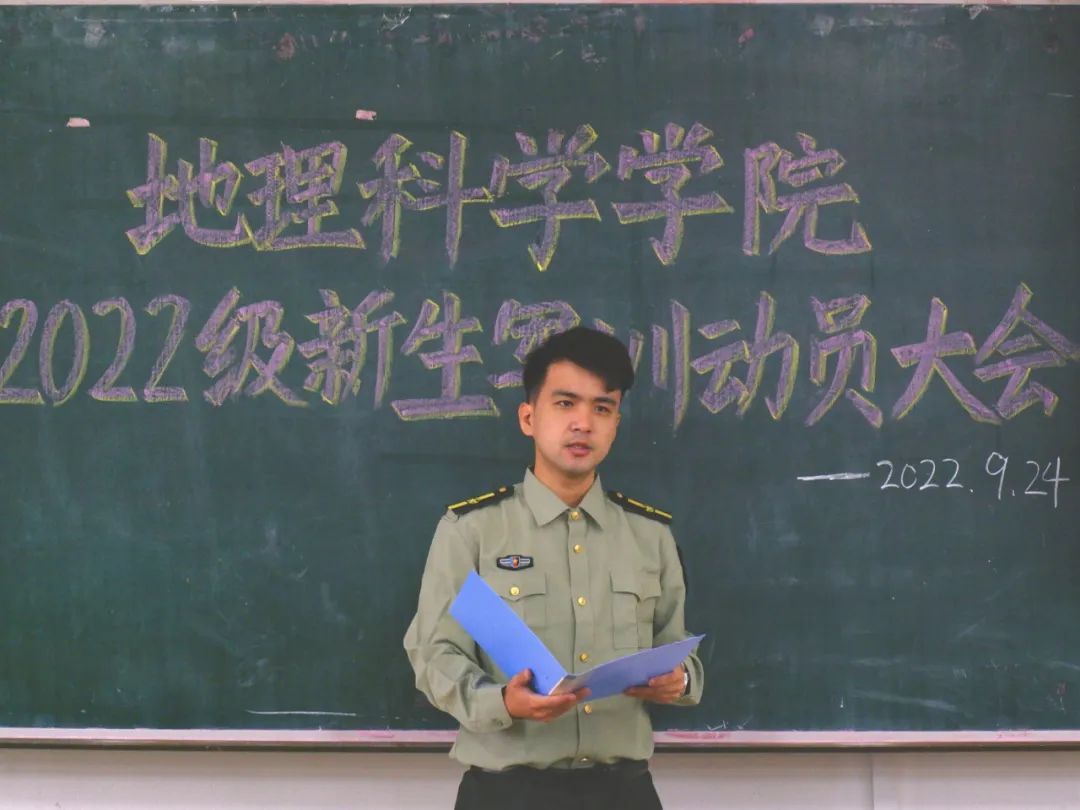 地理科学学院
2022级新生军训动员大会
—2022.9.24